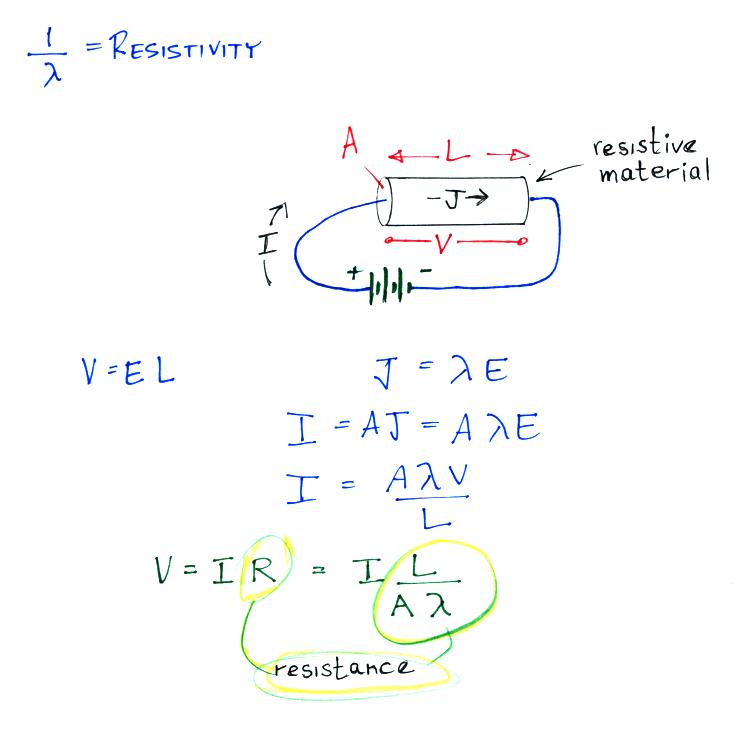 1/λ = RESISTIVITY
A
L
resistive
material
-J→
I
V
+ -
V = E L
J = λ E
I = AJ = A λ E
I = A λ V / L
V = I R = I L / A λ
resistance